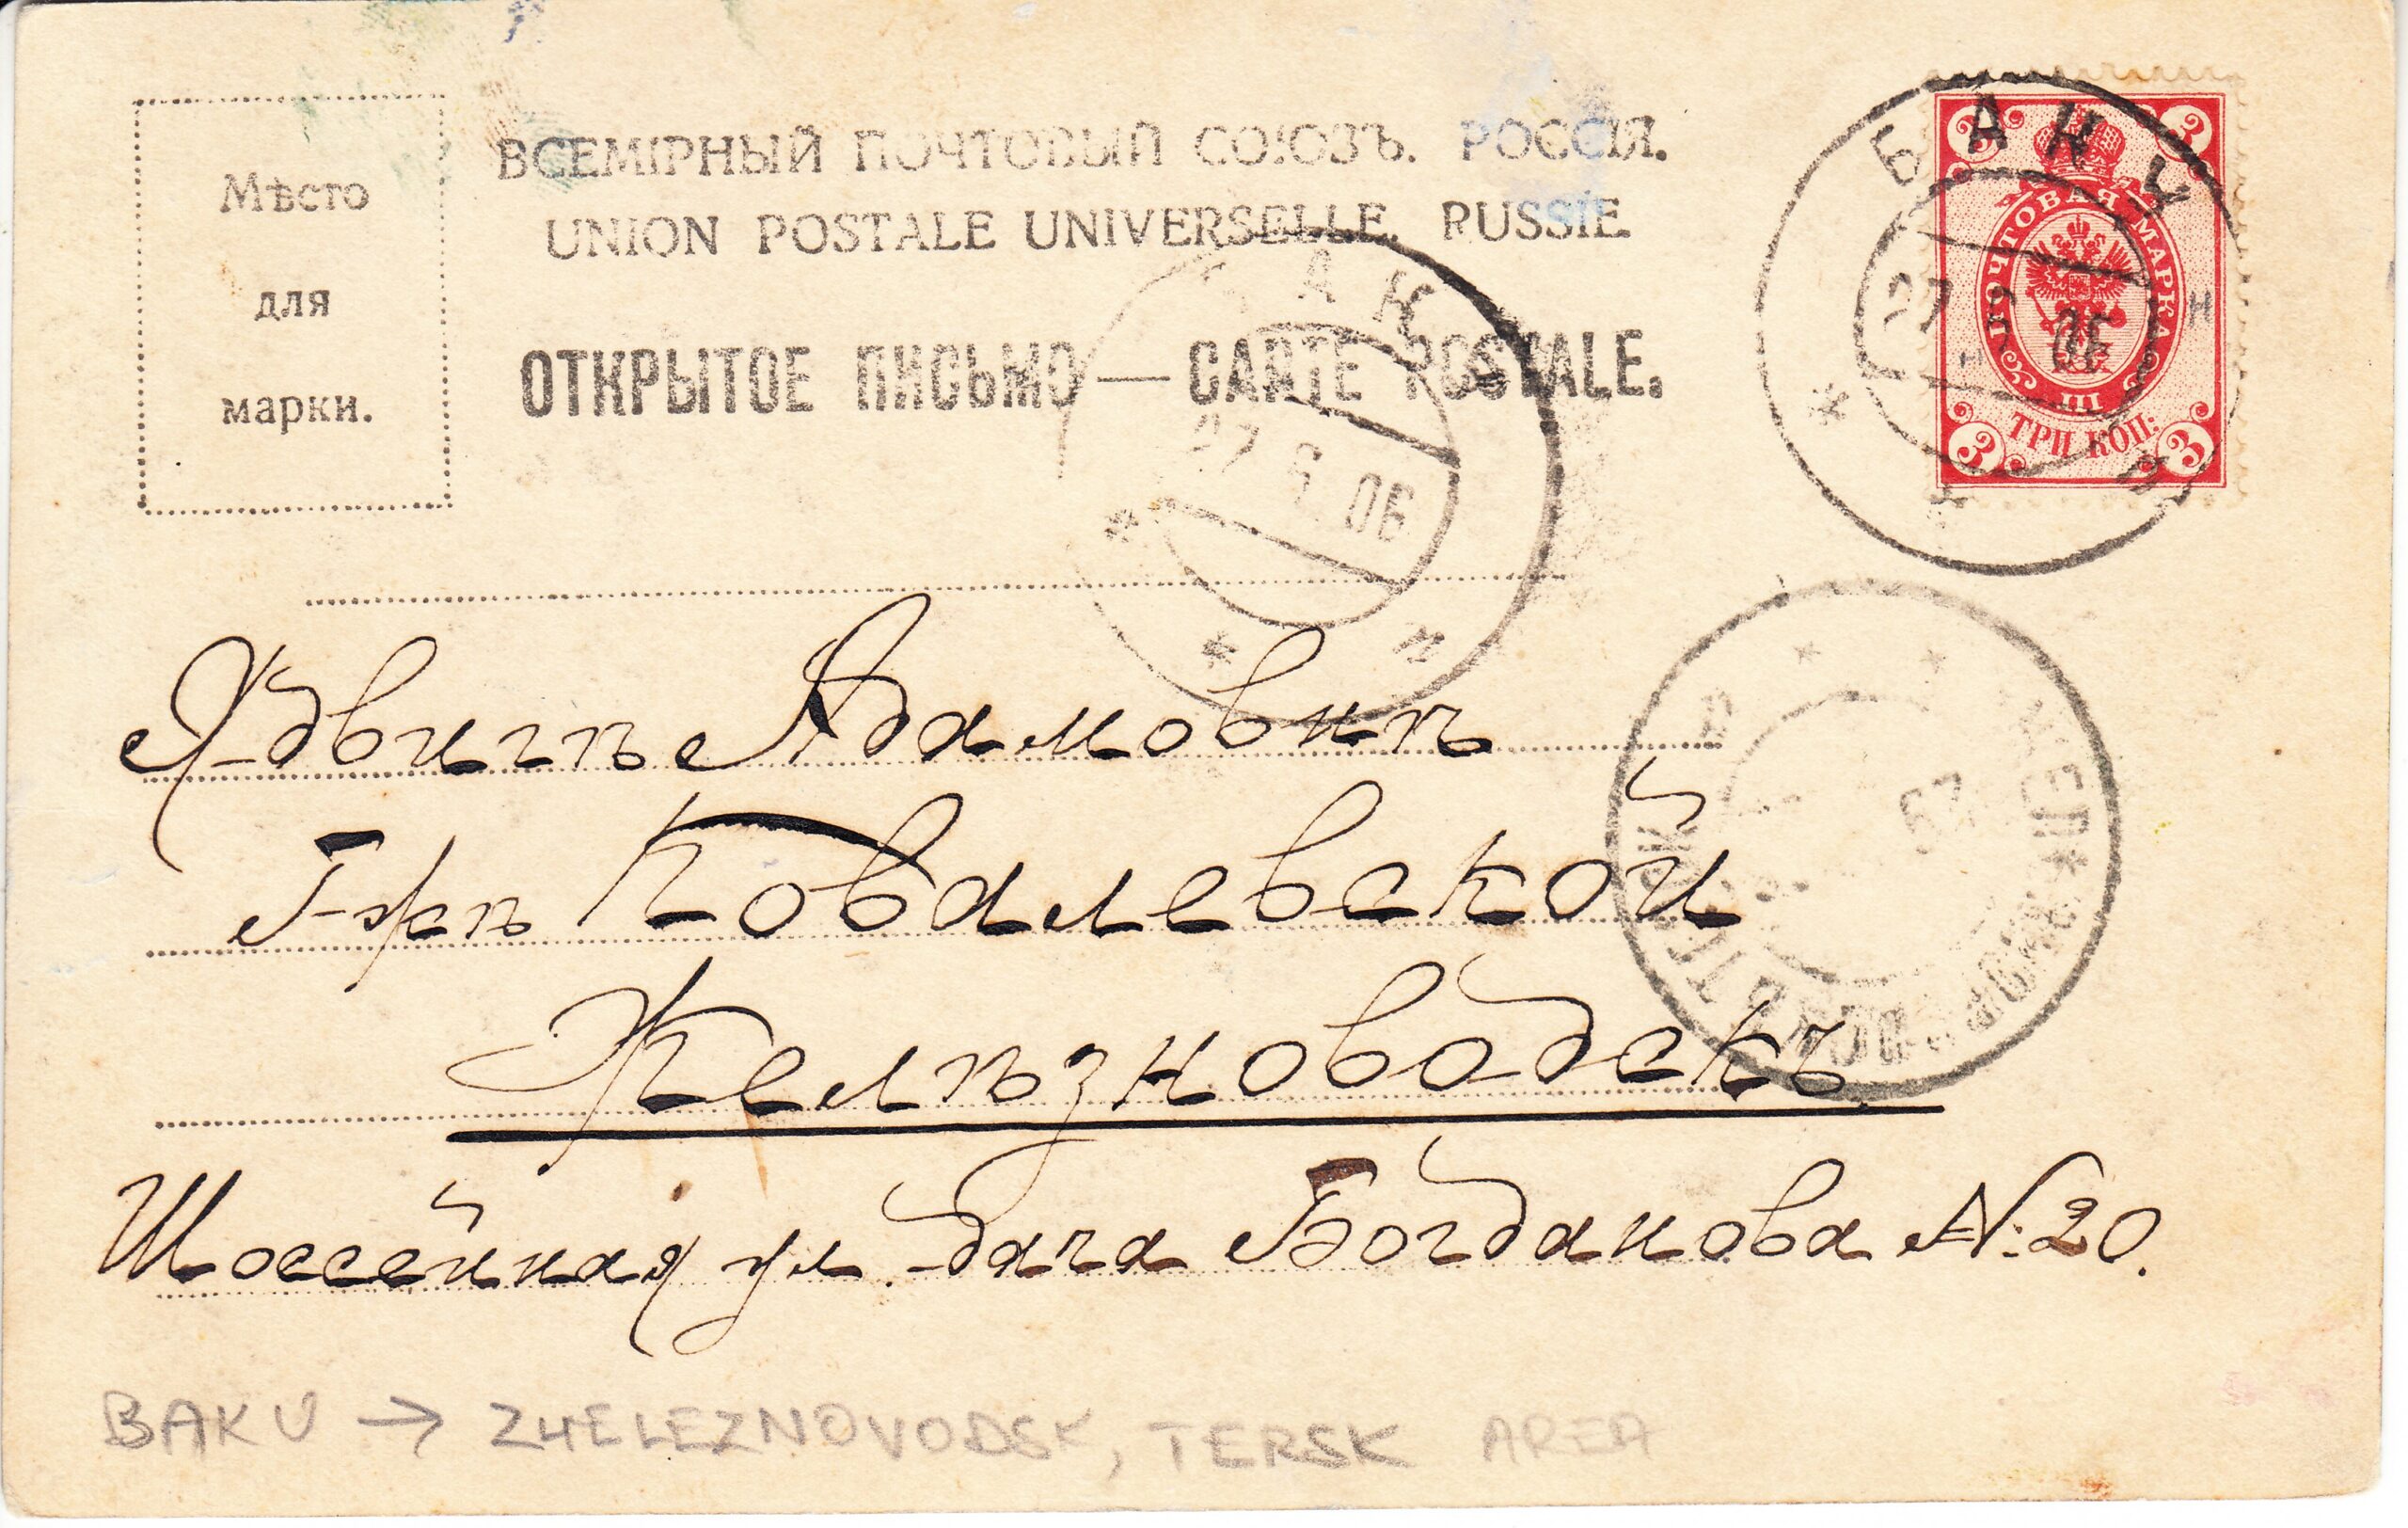 Мѣсто
для
марки.
ВСЕМІРНЫЙ ПОЧТОВЫЙ СОЮЗЪ. РОССІЯ.
UNION POSTALE UNIVERSELLE. RUSSIE.
ОТКРЫТОЕ ПИСЬМО — CARTE POSTALE.
БАКУ
27 6 06
н
ПОЧТОВАЯ МАРКА
III
ТРИ КОП:
3 3 3 3
БАК
27 6 06
н
Ядвигѣ Адамовнѣ
Г-жѣ Ковалевской
Желѣзноводскъ
Шоссейная ул. дача Богданова №20.
BAKU → ZHELEZNOVODSK, TERSK AREA